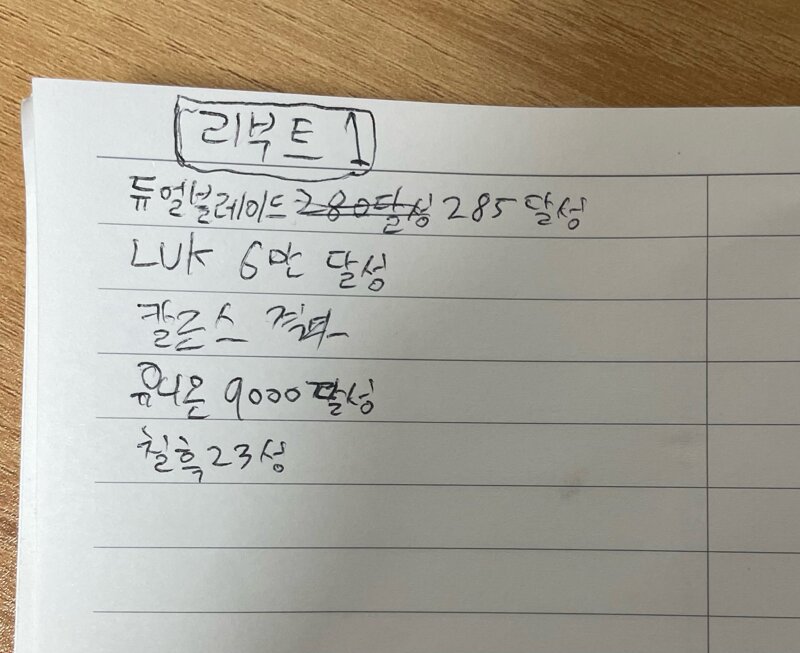 리부트 1
듀얼블레이드 280달성 285 달성
LUK 6만 달성
칼로스 격파
유니온 9000 달성
칠흑 23성